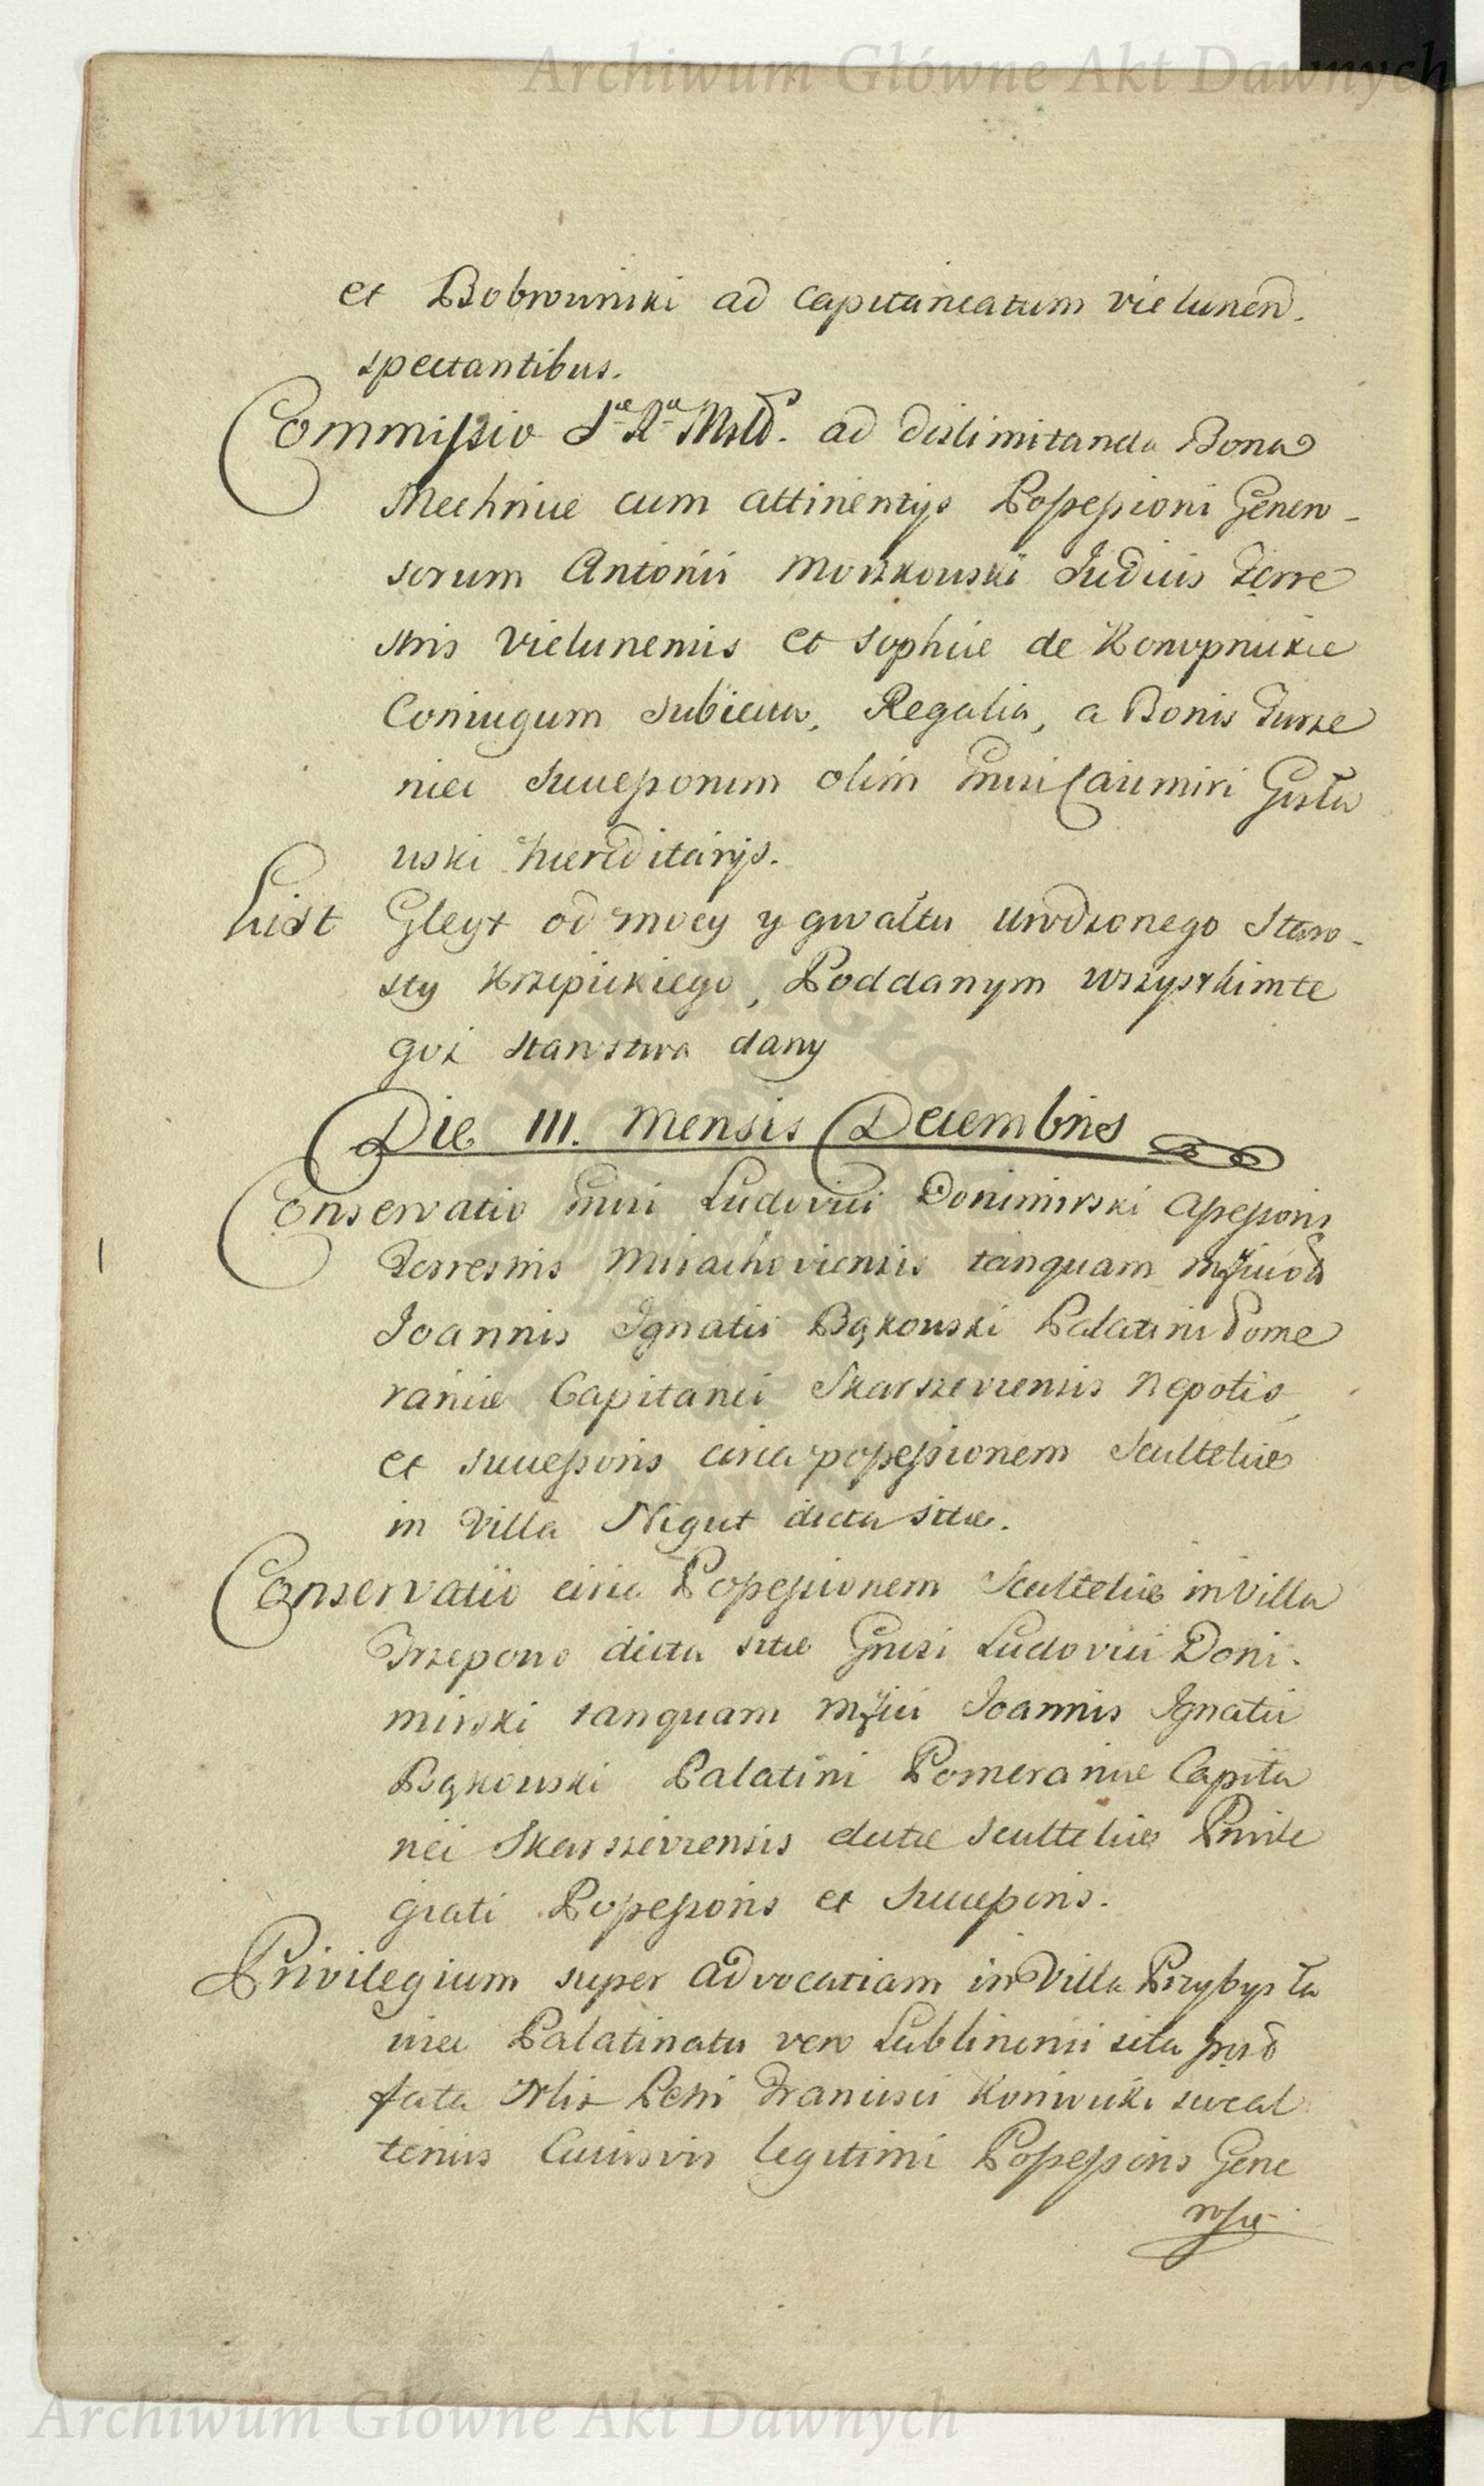 Archiwum Główne Akt Dawnych
et Bobrowniki ad Capitaneatum Vielunen̄.
spectantibus.
Commissio Sae Rae Mttis. ad dislimitanda Bona
Mechnice cum attinentijs Possessioni Genero-
sorum Antonii Morzkowski Judicis Terre
stris Vielunensis et Sophiæ de Konopnickie
Coniugum subiecta, Regalia, a Bonis
nici Successorum olim Gnisi Casimiri
wski hæreditarijs.
List Gleyt od mocy y gwałtu Urodzonego Staro-
sty Krzepickiego, Poddanym wszystkim te
goż Starostwa dany
Die III. Mensis Decembris
Conservatio Gnisi Ludovici Donimirski Assessoris
Terrestris Mirachoviensis tanquam
Joannis Ignatii Bąkowski Palatini Pome
raniæ Capitanei Skarszeviensis Nepotis
et Successoris circa possessionem Scultetiæ
in Villa Nigut dicta sitæ.
Conservatio circa Possessionem Scultetiæ in Villa
Trzepowo dicta sitæ Gnisi Ludovici Doni-
mirski tanquam Mgfici Joannis Ignatii
Bąkowski Palatini Pomeraniæ Capita
nei Skarszeviensis dictæ Scultetiæ Privile
giati Possessoris et Successoris.
Privilegium super Advocatiam in Villa Przybysła
wice Palatinatu vero Lublinensi sita
fata olim Petri Francisci
tenus Cuiusvis legitimi Possessoris Gene
rosæ
Archiwum Główne Akt Dawnych